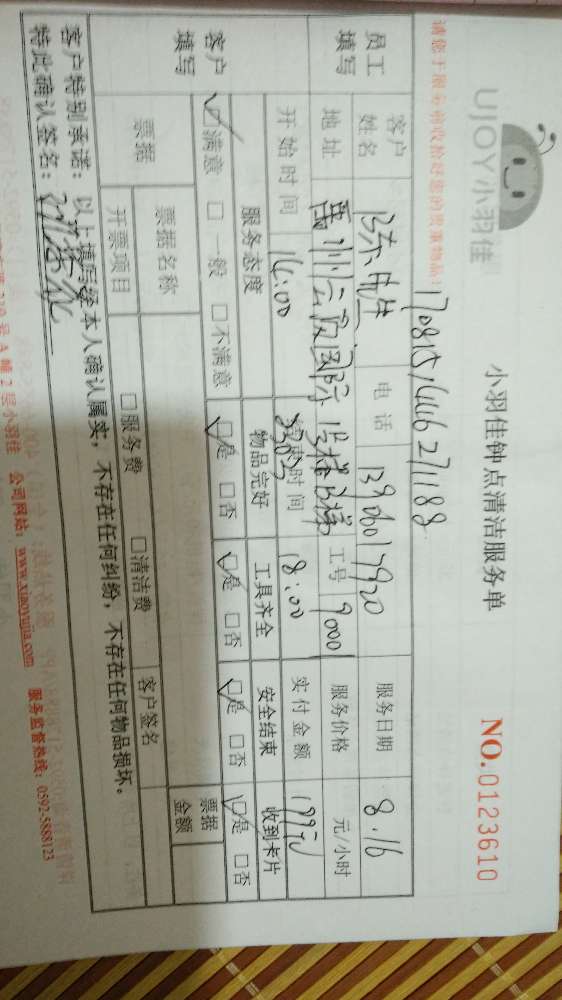 UJOY小羽佳
小羽佳钟点清洁服务单
NO.0123610
请您于服务前收拾好您的贵重物品!
708151446271188
员工填写
客户姓名 陈先生 电话 服务日期 8.16
地址 工号 90001 服务价格 元/小时
开始时间 14:00 结束时间 18:00 实付金额
客户填写
服务态度 物品完好 工具齐全 安全结束 收到卡片
☑满意 □一般 □不满意 ☑是 □否 ☑是 □否 ☑是 □否 ☑是 □否
票据 票据名称 票据金额
开票项目 □服务费 □清洁费 客户签名
客户特别承诺：以上填写经本人确认属实，不存在任何纠纷，不存在任何物品损坏。
特此确认签名：
号A幢2层小羽佳 公司网站：www.xiaoyujia.com 服务监督热线：0592-5888123